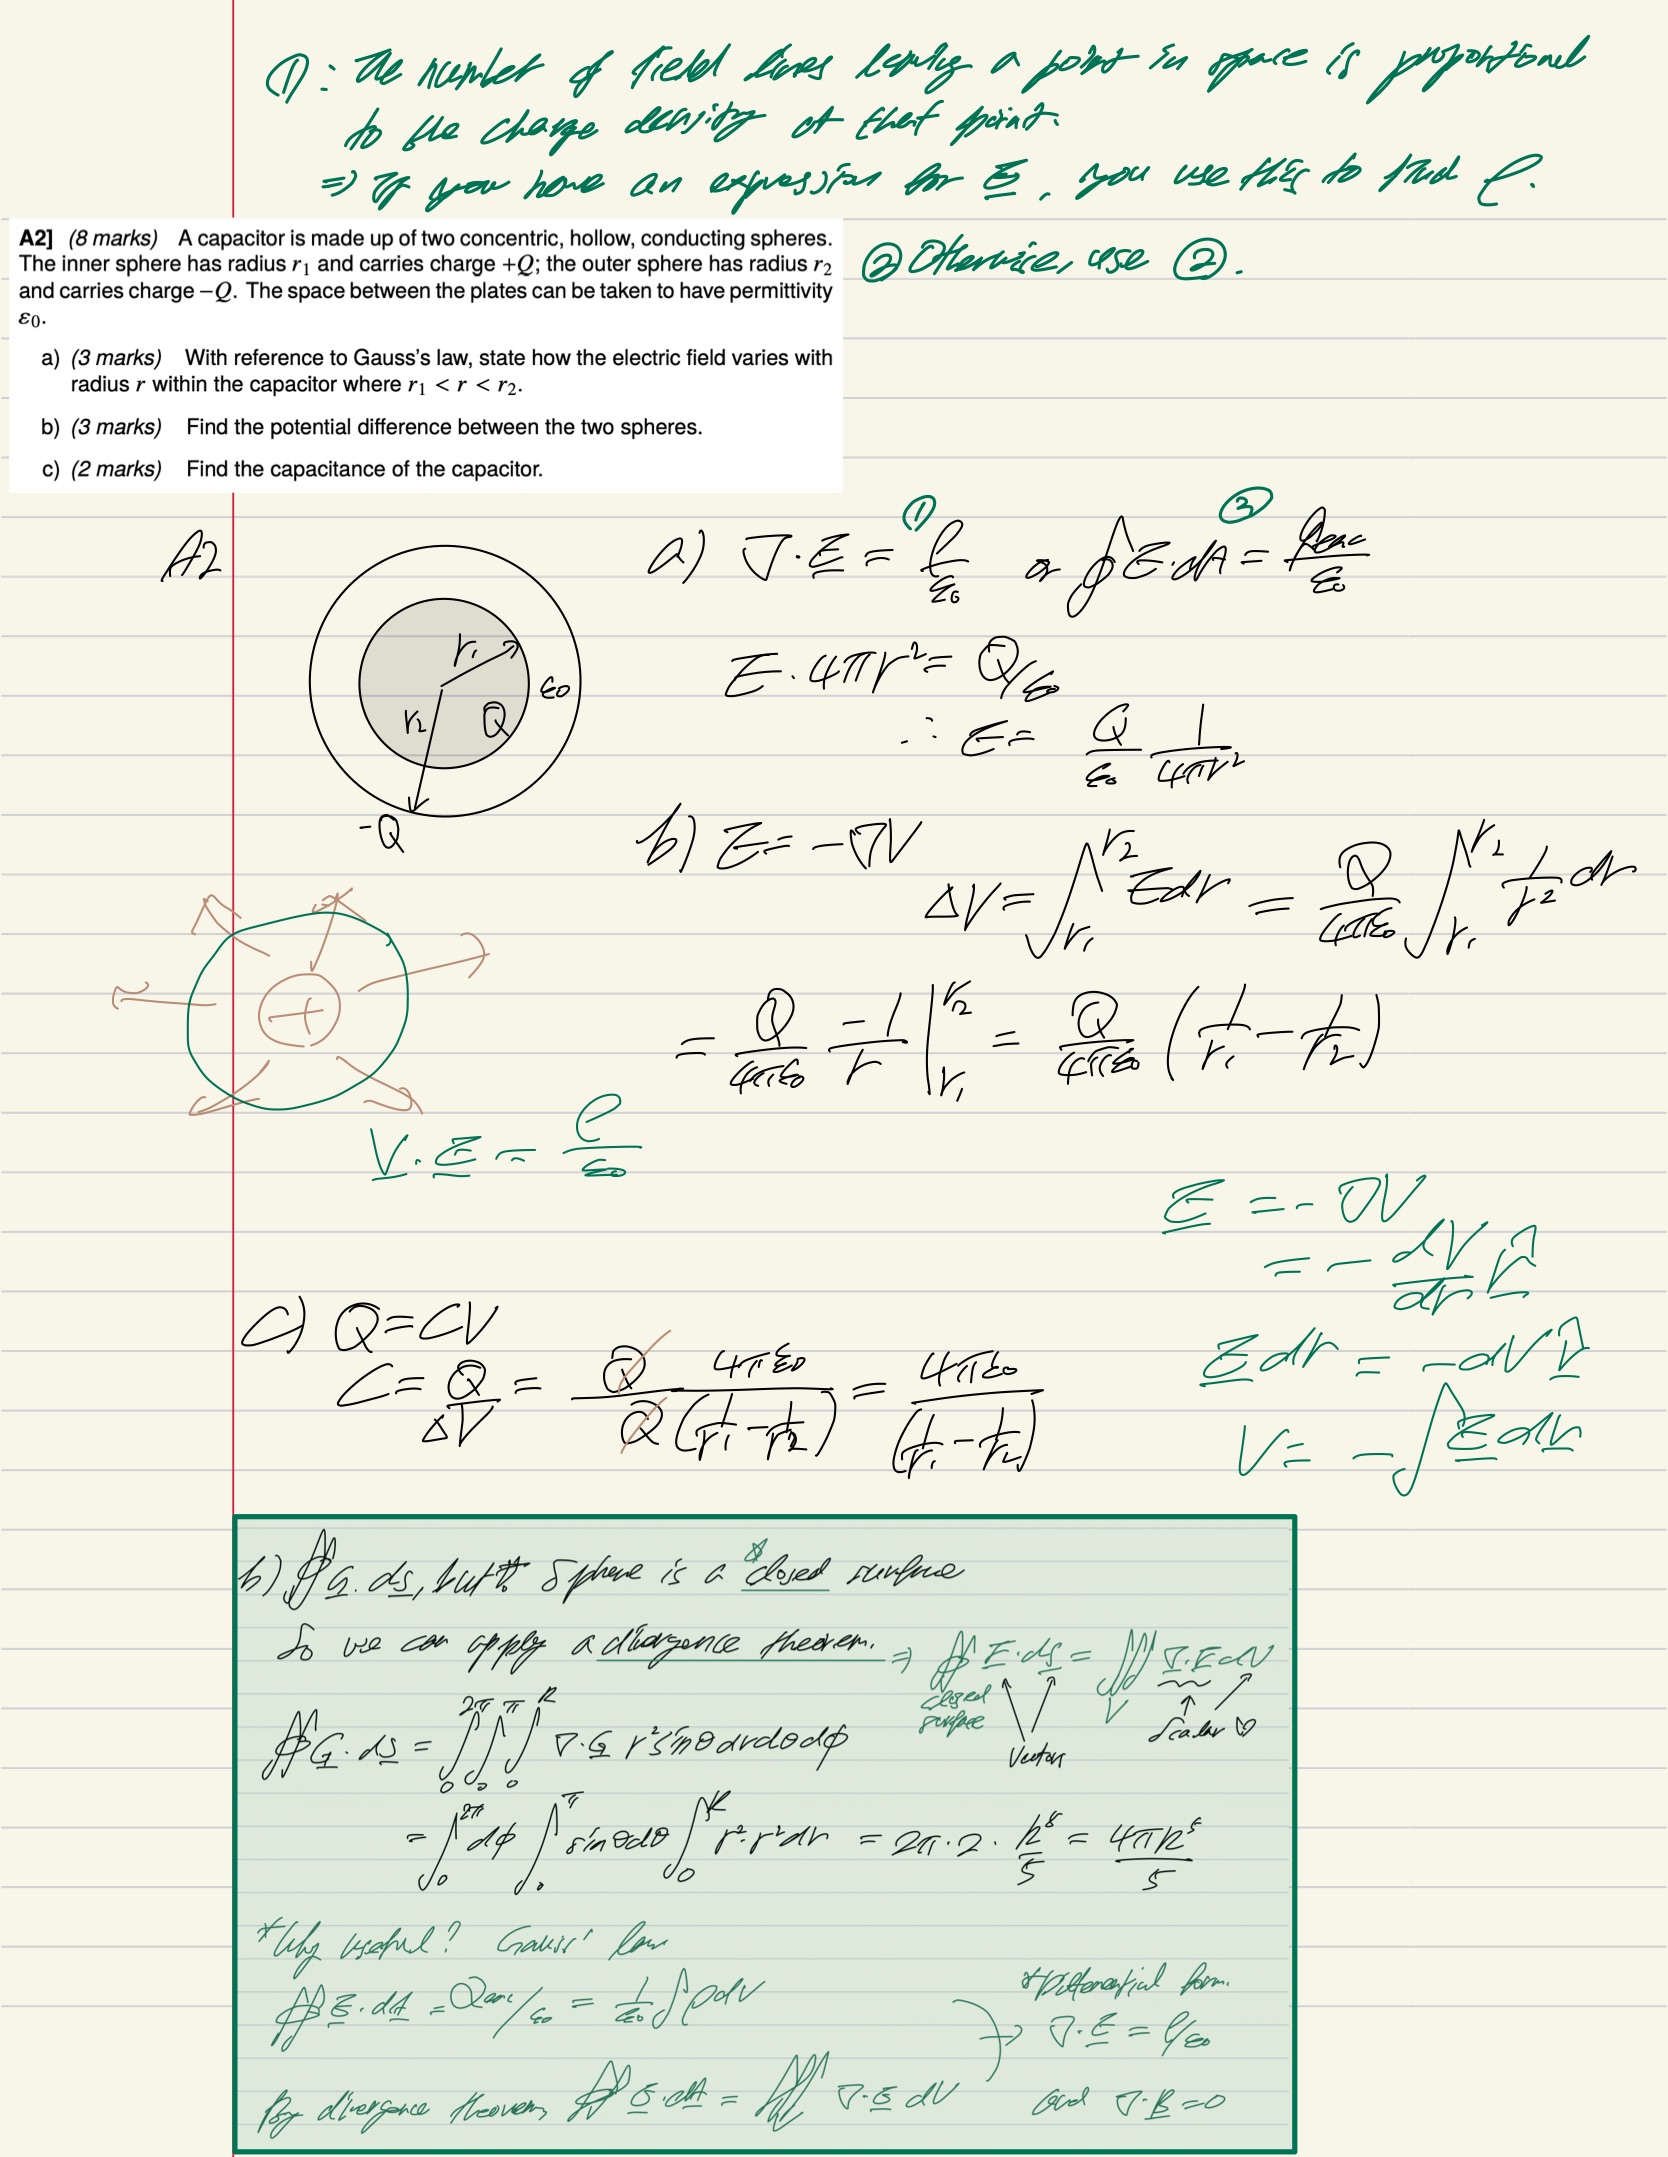 ①: The number of field lines leaving a point in space is proportional
to the charge density at that point.
=> If you have an expression for E, you use this to find ρ.
② Otherwise, use ②.
A2] (8 marks) A capacitor is made up of two concentric, hollow, conducting spheres.
The inner sphere has radius r₁ and carries charge +Q; the outer sphere has radius r₂
and carries charge −Q. The space between the plates can be taken to have permittivity
ε₀.
a) (3 marks) With reference to Gauss's law, state how the electric field varies with
radius r within the capacitor where r₁ < r < r₂.
b) (3 marks) Find the potential difference between the two spheres.
c) (2 marks) Find the capacitance of the capacitor.
A2
r₁
ε₀
r₂
Q
-Q
① ②
a) ∇·E = ρ/ε₀ or ∮E·dA = qenc/ε₀
E·4πr² = Q/ε₀
∴ E = Q/ε₀ 1/4πr²
b) E = -∇V
ΔV = ∫_{r₁}^{r₂} E dr = Q/4πε₀ ∫_{r₁}^{r₂} 1/r² dr
= Q/4πε₀ -1/r |_{r₁}^{r₂} = Q/4πε₀ (1/r₁ - 1/r₂)
+
∇·E = ρ/ε₀
E = -∇V
= - dV/dr r̂
E dr = -dV r̂
V = -∫E dr
c) Q = CV
C = Q/ΔV = Q 4πε₀/Q(1/r₁ - 1/r₂) = 4πε₀/(1/r₁ - 1/r₂)
b) ∯G·ds, but sphere is a closed surface
So we can apply a divergence theorem. => ∯E·ds = ∭∇·E dV
closed
surface
V
Vectors
Scalar
∯G·ds = ∫₀^{2π}∫₀^{π}∫₀^{R} ∇·G r² sinθ dr dθ dφ
= ∫₀^{2π} dφ ∫₀^{π} sinθ dθ ∫₀^{R} r²·r² dr = 2π·2·R⁵/5 = 4πR⁵/5
*Why useful? Gauss' law
∯E·dA = Qenc/ε₀ = 1/ε₀ ∫ρdV
*Differential form.
∇·E = ρ/ε₀
By divergence theorem, ∯E·dA = ∭∇·E dV
and ∇·B = 0